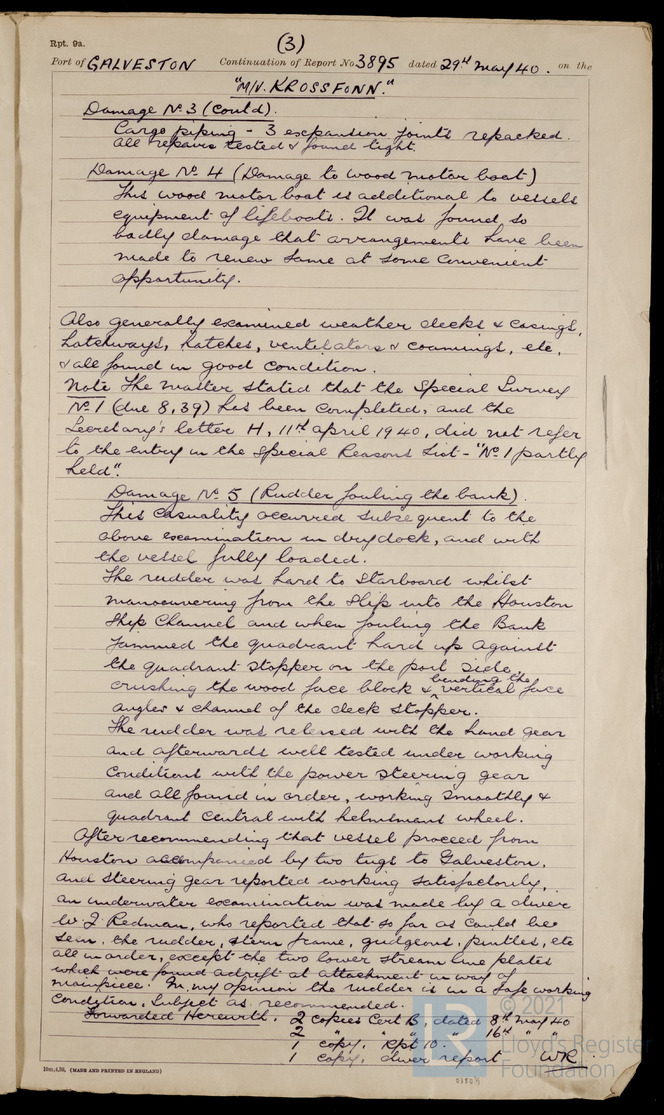 Rpt. 9a.
(3)
Port of GALVESTON Continuation of Report No 3895 dated 29th May 40. on the
"M/V. KROSSFONN."
Damage No. 3 (Contd).
Cargo piping - 3 expansion joints repacked.
All repairs tested & found tight.
Damage No. 4 (Damage to wood motor boat)
This wood motor boat is additional to vessels
equipment of lifeboats. It was found so
badly damage that arrangements have been
made to renew same at some convenient
opportunity.
Also generally examined weather decks & casings,
hatchways, hatches, ventilators & coamings, etc,
& all found in good condition.
Note The master stated that the Special Survey
No. 1 (due 8,39) has been completed, and the
Secretary's letter H, 11th April 1940, did not refer
to the entry in the Special Reasons List - "No. 1 partly
held".
Damage No. 5 (Rudder fouling the bank).
This casuality occurred subsequent to the
above examination in drydock, and with
the vessel fully loaded.
The rudder was hard to Starboard whilst
manoeuvering from the slip into the Houston
Ship Channel and when fouling the Bank
jammed the quadrant hard up against
the quadrant stopper on the port side,
crushing the wood face block & bending the vertical face
angles & channel of the deck stopper.
The rudder was released with the hand gear
and afterwards well tested under working
conditions with the power steering gear
and all found in order, working smoothly &
quadrant central with helmsmans wheel.
After recommending that vessel proceed from
Houston accompanied by two tugs to Galveston,
and steering gear reported working satisfactorily,
an underwater examination was made by a diver
W. J. Redman, who reported that so far as could be
seen, the rudder, stern frame, gudgeons, pintles, etc
all in order, except the two lower stream line plates
which were found adrift at attachment in way of
mainpiece. In my opinion the rudder is in a safe working
condition. Subject as recommended.
Forwarded Herewith. 2 copies Cert B, dated 8th May 40
2 " " " 16th " "
1 copy. Rpt 10. "
1 copy, diver report WR
10m.4.39. (MADE AND PRINTED IN ENGLAND)
© 2021
LR
Lloyd's Register
Foundation